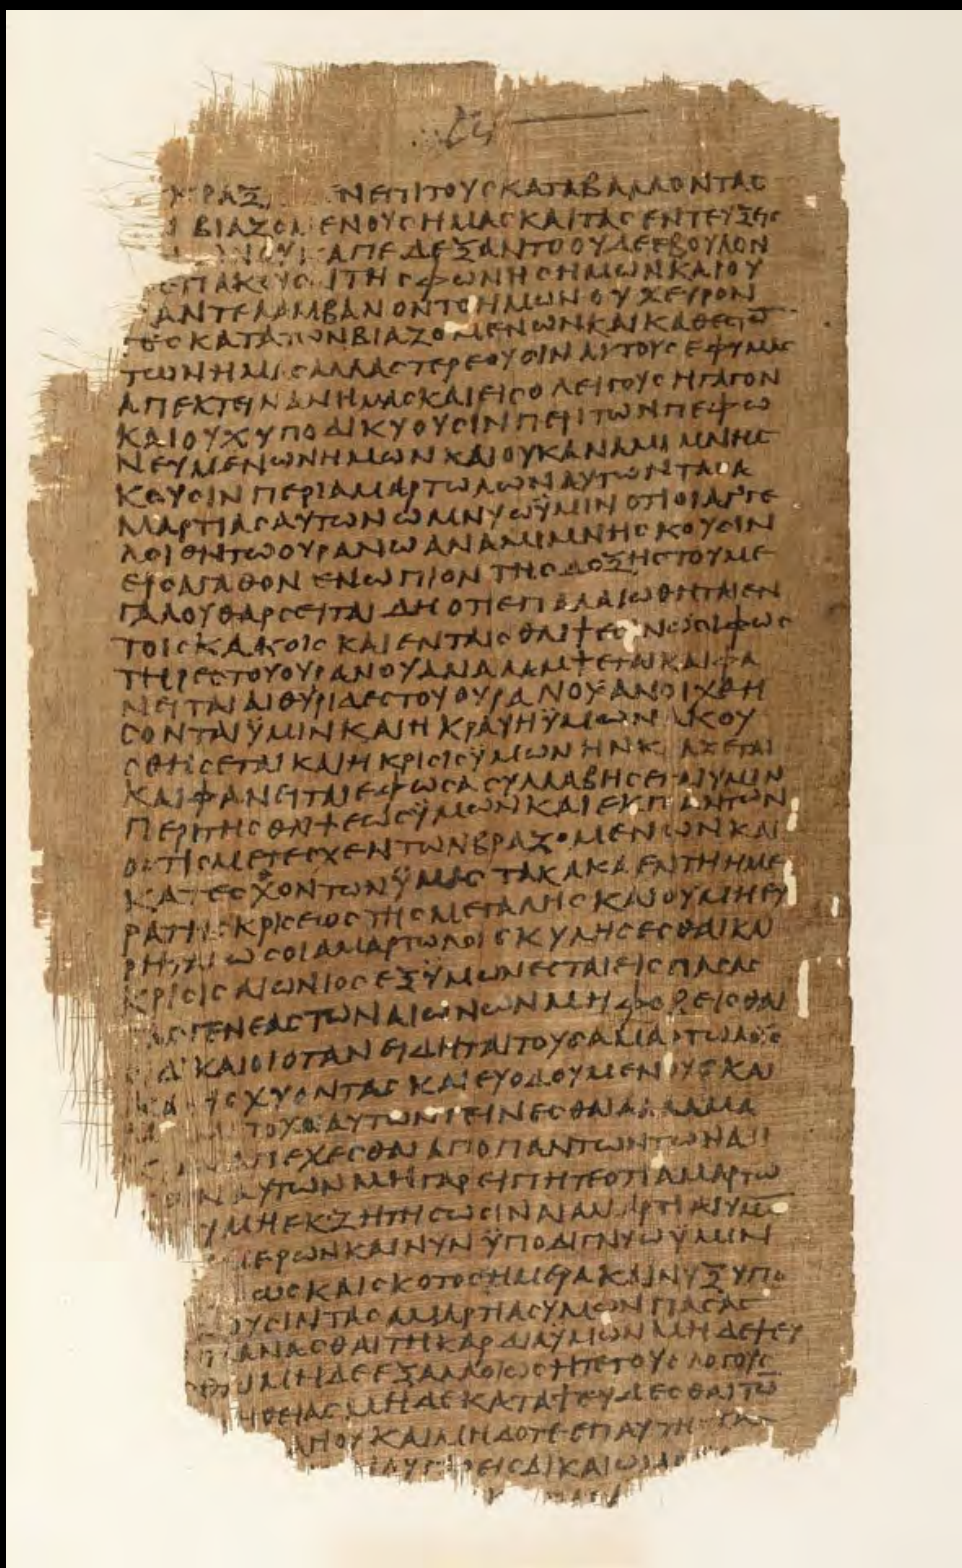 ΝΕΠΙΤΟΥΣΚΑΤΑΒΑΛΛΟΝΤΑΣ
ΒΙΑΖΟΜΕΝΟΥΣΗΜΑΣΚΑΙΤΑΣΕΝΤΕΥΞΕΙΣ
ΑΠΕΔΕΞΑΝΤΟΟΥΔΕΕΒΟΥΛΟΝ
ΤΗΣΦΩΝΗΣΗΜΩΝΚΑΙΟΥ
ΑΝΤΕΛΑΜΒΑΝΟΝΤΟΗΜΩΝΟΥΧΕΥΡΟΝ
ΚΑΤΑΤΩΝΒΙΑΖΟΜΕΝΩΝΚΑΙΚΑΤΕΣΘ
ΤΩΝΗΜΑΣΑΛΛΑΣΤΕΡΕΟΥΣΙΝΑΥΤΟΥΣΕΦΥΜΑΣ
ΑΠΕΚΤΕΙΝΑΝΗΜΑΣΚΑΙΕΙΣΟΛΕΙΓΟΥΣΗΓΑΓΟΝ
ΚΑΙΟΥΧΥΠΟΔΙΚΥΟΥΣΙΝΠΕΡΙΤΩΝΠΕΦΩ
ΝΕΥΜΕΝΩΝΗΜΩΝΚΑΙΟΥΚΑΝΑΜΙΜΝΗΣ
ΚΟΥΣΙΝΠΕΡΙΑΜΑΡΤΩΛΩΝΑΥΤΩΝΤΑΣΑ
ΜΑΡΤΙΑΣΑΥΤΩΝΟΜΝΥΩΫΜΙΝΟΤΙΟΙΑΓΓΕ
ΛΟΙΕΝΤΩΟΥΡΑΝΩΑΝΑΜΙΜΝΗΣΚΟΥΣΙΝ
ΕΙΣΑΓΑΘΟΝΕΝΩΠΙΟΝΤΗΣΔΟΞΗΣΤΟΥΜΕ
ΓΑΛΟΥΘΑΡΣΕΙΤΑΙΔΗΟΤΙΕΠΑΛΑΙΩΘΗΤΑΙΕΝ
ΤΟΙΣΚΑΚΟΙΣΚΑΙΕΝΤΑΙΣΘΛΙΨΕΣΙΝΩΣΙΦΩΣ
ΤΗΡΕΣΤΟΥΟΥΡΑΝΟΥΑΝΑΛΑΜΨΕΤΑΙΚΑΙΦΑ
ΝΕΙΤΑΙΑΙΘΥΡΙΔΕΣΤΟΥΟΥΡΑΝΟΥΑΝΟΙΧΘΗ
ΣΟΝΤΑΙΫΜΙΝΚΑΙΗΚΡΑΥΗΫΜΩΝΑΚΟΥ
ΣΘΗΣΕΤΑΙΚΑΙΗΚΡΙΣΙΣΫΜΩΝΗΝΚΡΑΖΕΤΑΙ
ΚΑΙΦΑΝΕΙΤΑΙΕΦΩΣΑΣΥΛΛΑΒΗΣΕΤΑΙΥΜΙΝ
ΠΕΡΙΤΗΣΘΛΙΨΕΩΣΫΜΩΝΚΑΙΕΚΠΑΝΤΩΝ
ΟΣΤΙΣΜΕΤΕΣΧΕΝΤΩΝΒΡΑΖΟΜΕΝΩΝΚΑΙ
ΚΑΤΕΣΧΟΝΤΩΝΫΜΑΣΤΑΚΑΚΑΕΝΤΗΗΜΕ
ΡΑΤΗΣΚΡΙΣΕΩΣΤΗΣΜΕΓΑΛΗΣΚΑΙΟΥΜΗΕΥ
ΡΗΤΑΙΩΣΟΙΑΜΑΡΤΩΛΟΙΣΚΥΛΗΣΕΣΘΑΙΚΑΙ
ΚΡΙΣΙΣΑΙΩΝΙΟΣΕΞΫΜΩΝΕΣΤΑΙΕΙΣΠΑΣΑΣ
ΓΕΝΕΑΣΤΩΝΑΙΩΝΩΝΜΗΦΟΒΕΙΣΘΑΙ
ΔΙΚΑΙΟΙΟΤΑΝΕΙΔΗΤΑΙΤΟΥΣΑΜΑΡΤΩΛΟΥΣ
ΧΥΟΝΤΑΣΚΑΙΕΥΟΔΟΥΜΕΝΟΥΣΚΑΙ
ΑΥΤΩΝΓΕΙΝΕΣΘΑΙΑΛΛΑΜΑ
ΑΠΕΧΕΣΘΑΙΑΠΟΠΑΝΤΩΝΤΩΝΑΔΙ
ΑΥΤΩΝΜΗΓΑΡΕΙΠΗΤΕΟΤΙΑΜΑΡΤΩ
ΥΜΗΕΚΖΗΤΗΣΩΣΙΝΑΙΑΜΑΡΤΙΑΙΥΜΩ
ΜΕΡΩΝΚΑΙΝΥΝΫΠΟΔΙΓΝΥΩΫΜΙΝ
ΩΣΚΑΙΣΚΟΤΟΣΗΜΕΡΑΚΑΙΝΥΞΥΠΟ
ΟΥΣΙΝΤΑΣΑΜΑΡΤΙΑΣΥΜΩΝΠΑΣΑΣ
ΠΛΑΝΑΣΘΑΙΤΗΚΑΡΔΙΑΫΜΩΝΜΗΔΕΨΕΥ
ΜΗΔΕΕΞΑΛΛΟΙΩΣΗΤΕΤΟΥΣΛΟΓΟΥΣ
ΗΘΕΙΑΣΜΗΔΕΚΑΤΑΨΕΥΔΕΣΘΑΙΤΩ
ΓΙΟΥΚΑΙΜΗΔΟΤΕΕΠΑΥΤΗ
ΕΙΣΔΙΚΑΙΩΜΑ